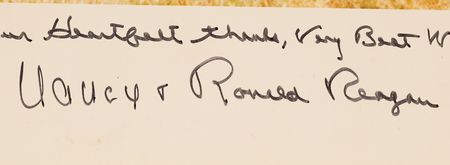 our Heartfelt thanks, Very Best W
Nancy & Ronald Reagan